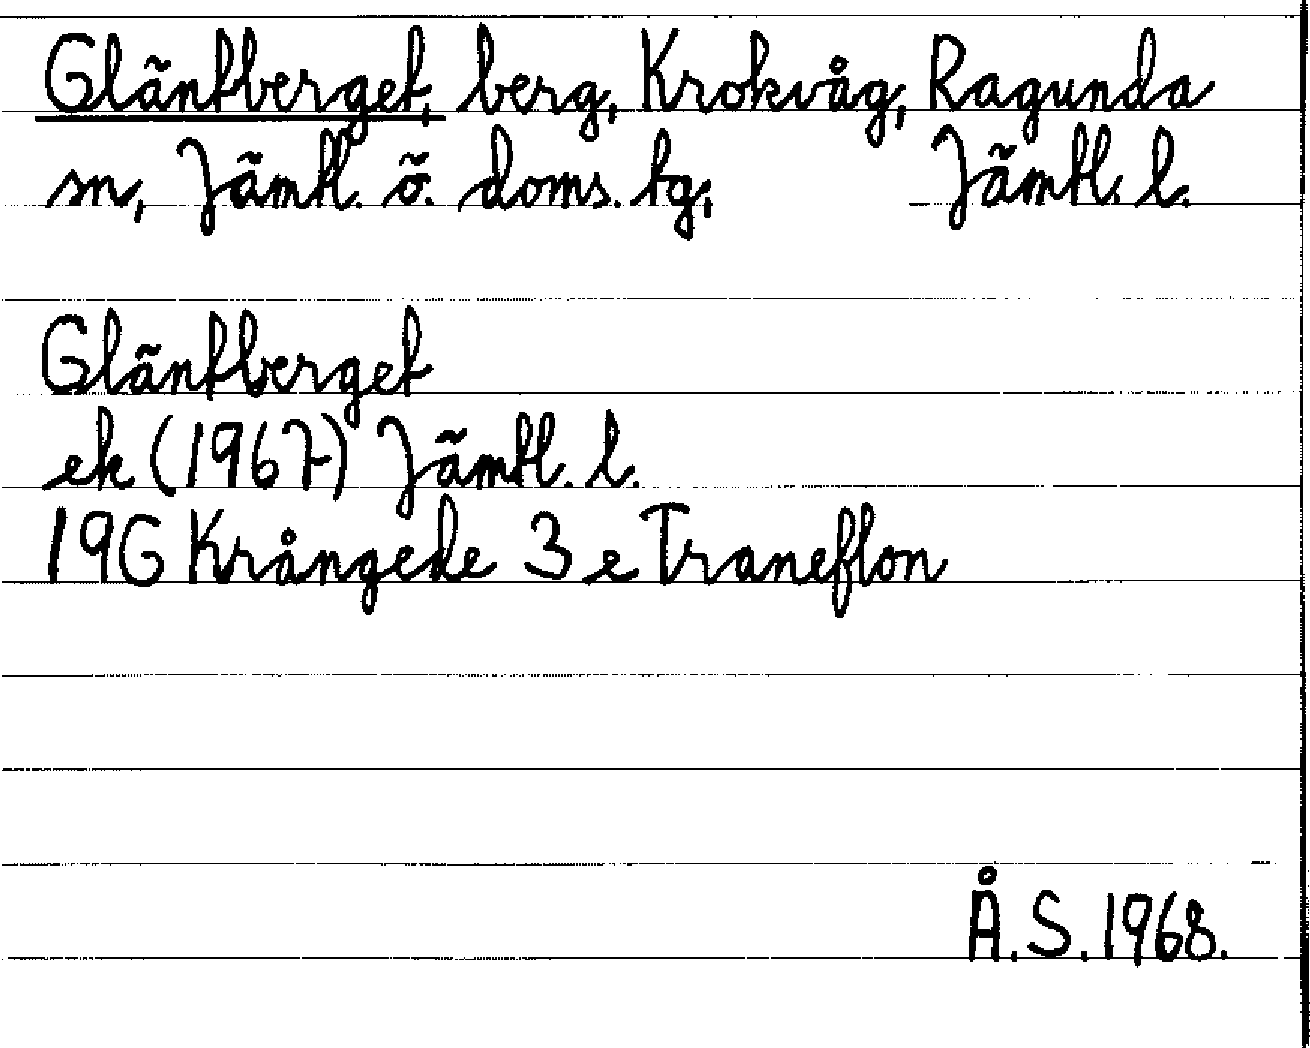 Gläntberget, berg, Krokvåg, Ragunda
sn, Jämtl. ö. doms. tg, Jämtl. l.
Gläntberget
ek (1967) Jämtl. l.
19G Krångede 3 e Traneflon
Å.S. 1968.